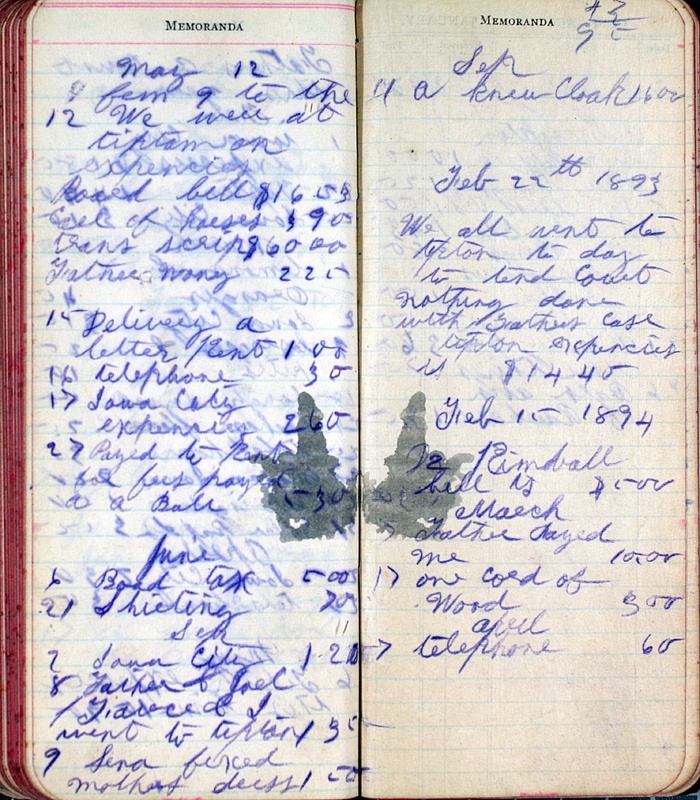 MEMORANDA
May 12
9 from 9 to the
12 We were at
tipton on
expencies
Board bill $16.53
of horses $ 9 00
trans script $60 00
Father mony 2 25
15 Delivery a
letter Kent 1 00
16 telephone 30
17 Iowa City
expencies 2 60
27 Payed to Kent
for fees payed
a a Ball 5 30
June
6 Boad tax 5 00
21 Shieting 70
Sep
7 Iowa City 1.20
8 Father & Joel
& I
went to tipton 1 35
9 Sena fixed
mothers dress 1 50
MEMORANDA
43
95
Sep
11 a knew Cloak 16 00
Feb 22th 1893
We all went to
tipton to day
to tend Court
nothing done
with Fathers Case
tipton expencies
is $14 40
Feb 15 1894
Kimball
bill is $5 00
March
7 Father Payed
me 10.00
17 one cord of
Wood 3 00
April
7 telephone 60